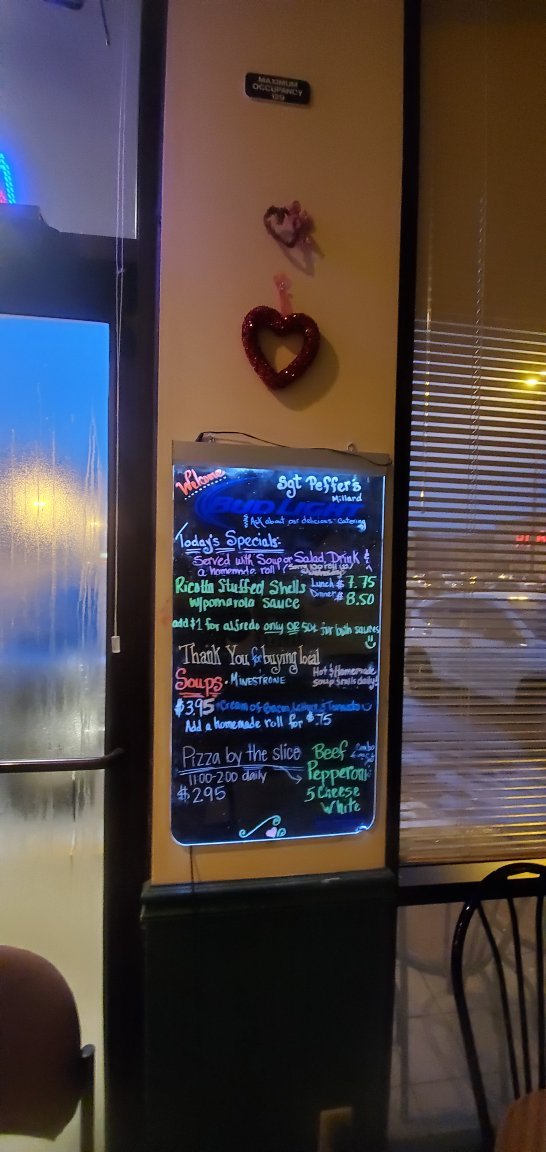 MAXIMUM
OCCUPANCY
129
Welcome
Sgt Peffer's
Millard
BUD LIGHT
Ask about our delicious Catering
Today's Specials-
Served with Soup or Salad, Drink &
a homemade roll!
Ricotta Stuffed Shells
w/pomarola sauce
Lunch $ 7.75
Dinner $ 8.50
add $1 for alfredo only OR 50¢ for both sauces
Thank You for buying local
Soups • MINESTRONE
Hot & Homemade
soup & rolls daily!
$3.95 • Cream of Bacon, Lettuce & Tomato
Add a homemade roll for $.75
Pizza by the slice
11:00-2:00 daily
$2.95
Beef
Pepperoni
5 Cheese
White